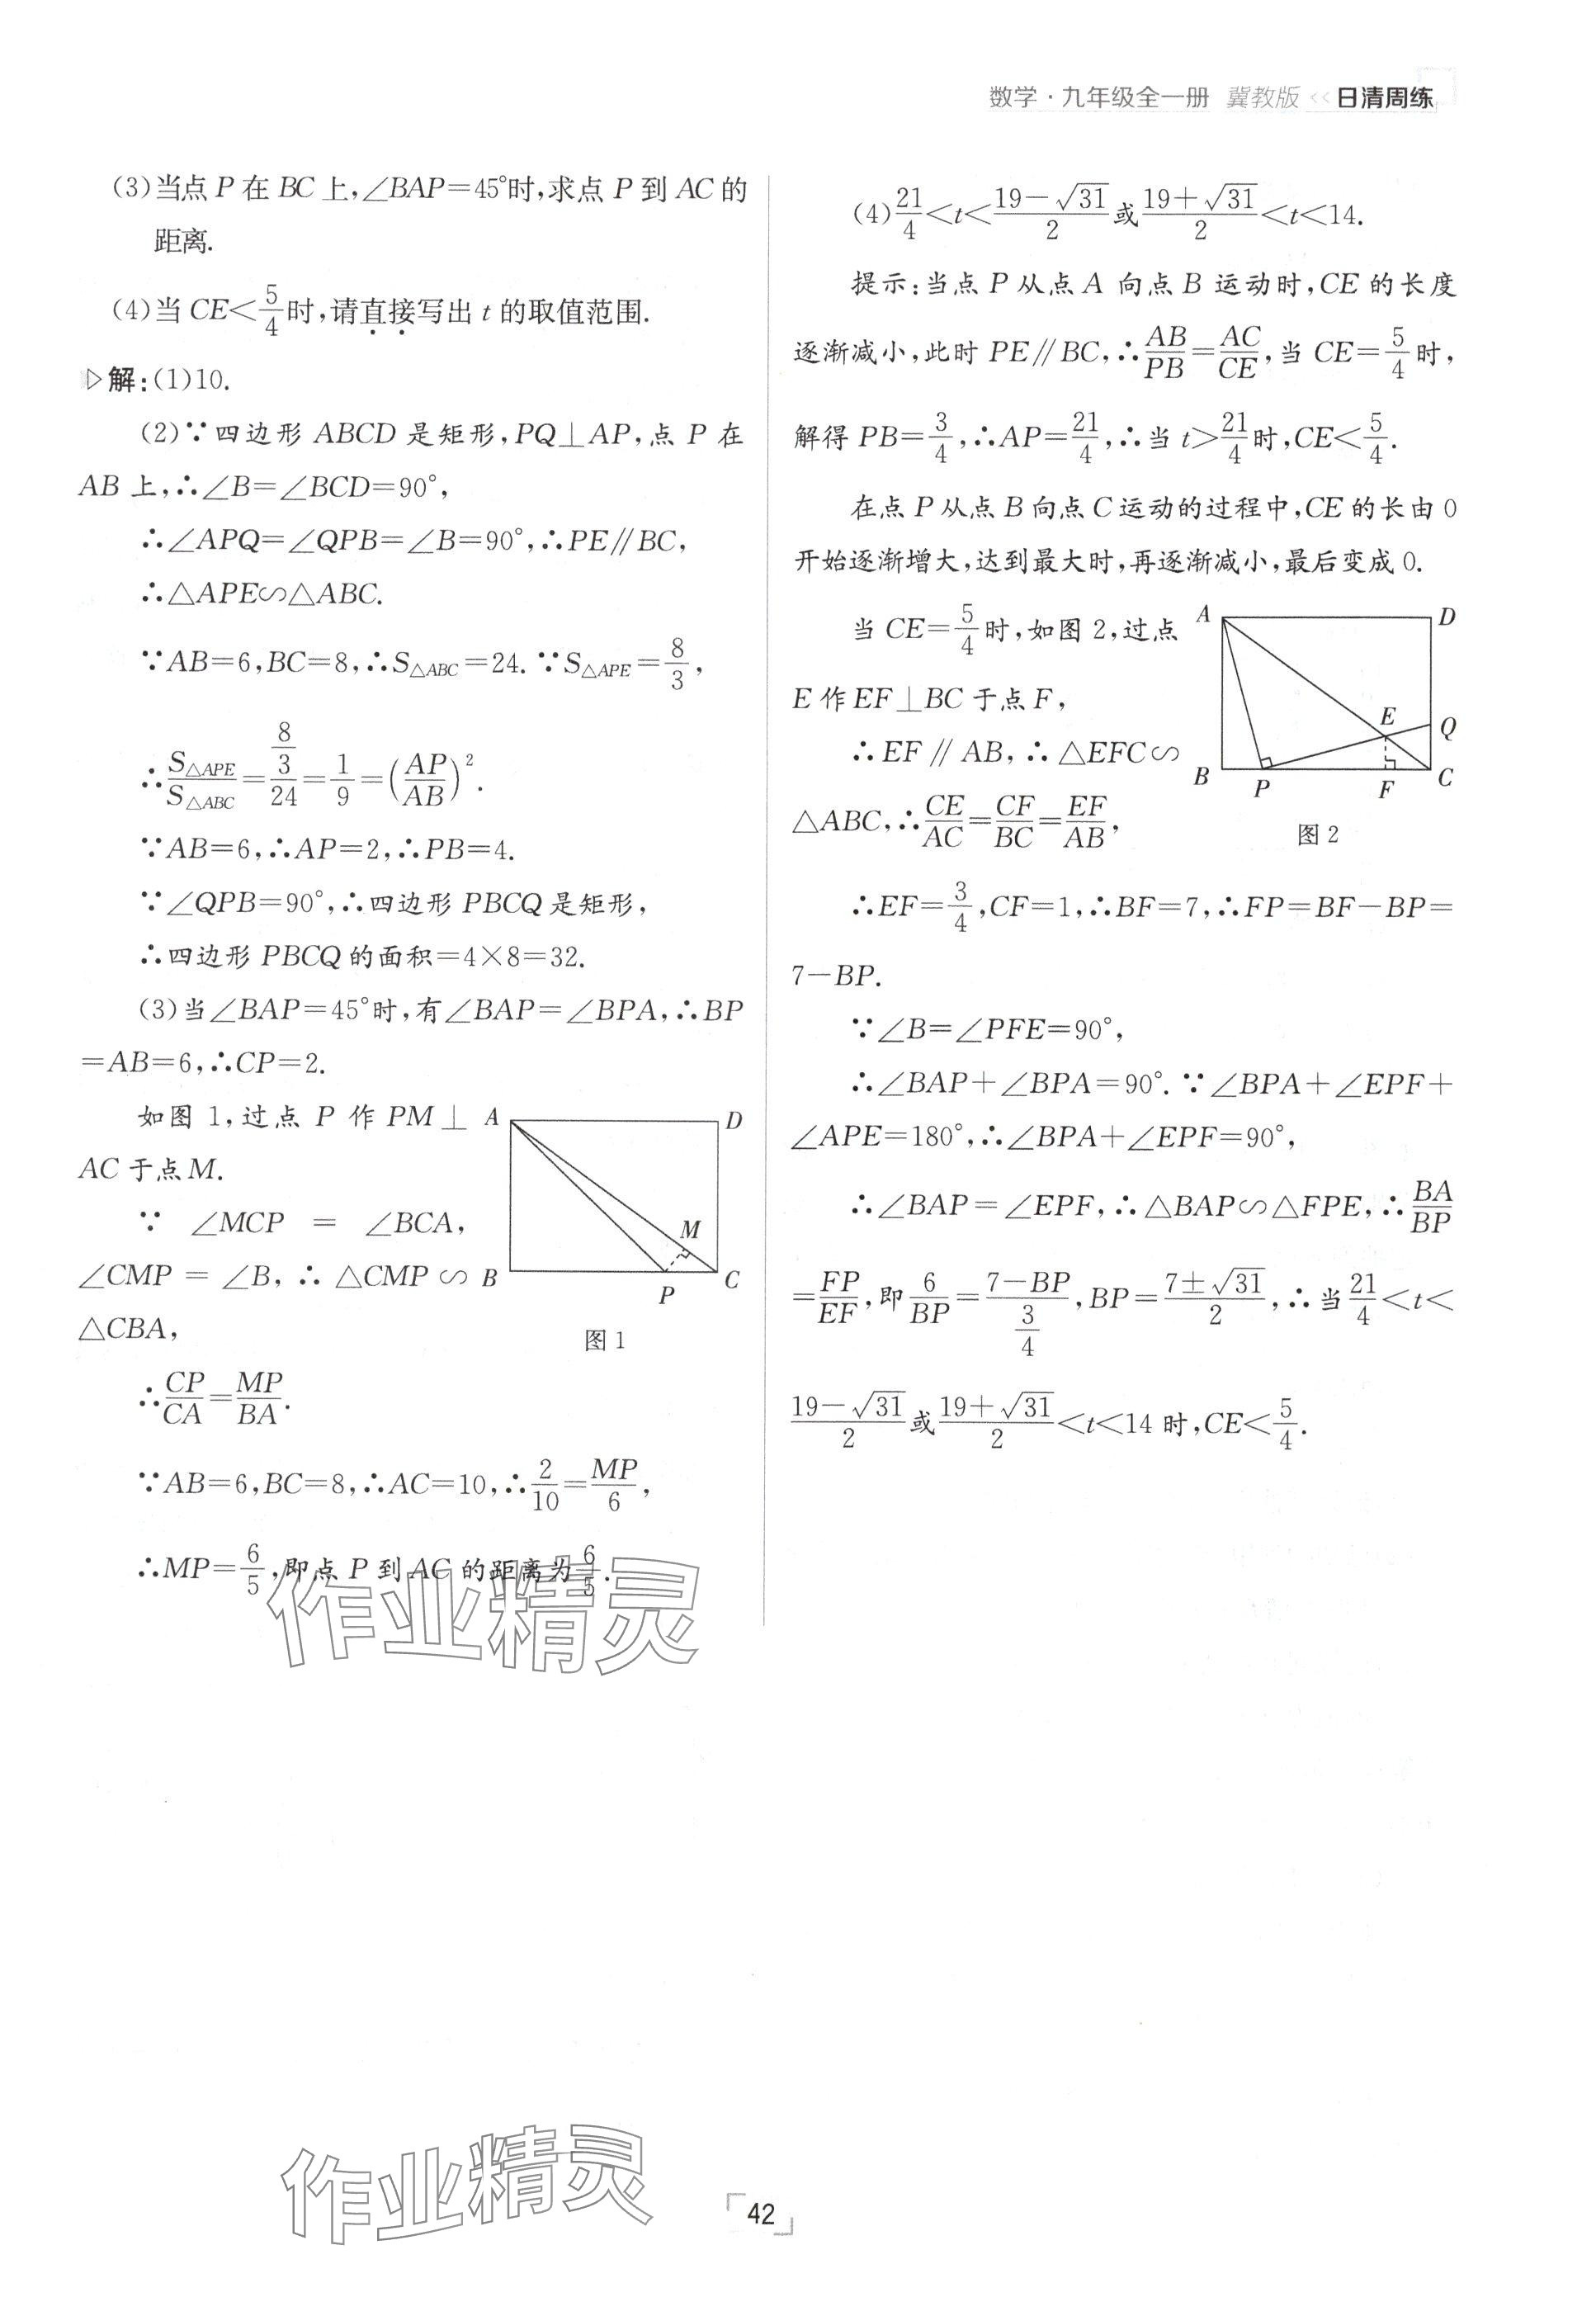 数学·九年级全一册 冀教版 << 日清周练
(3)当点 P 在 BC 上,∠BAP=45°时,求点 P 到 AC 的
距离.
(4)当 CE<5/4时,请直接写出 t 的取值范围.
▷解:(1)10.
(2)∵四边形 ABCD 是矩形,PQ⊥AP,点 P 在
AB 上,∴∠B=∠BCD=90°,
∴∠APQ=∠QPB=∠B=90°,∴PE∥BC,
∴△APE∽△ABC.
∵AB=6,BC=8,∴S△ABC=24.∵S△APE=8/3,
∴S△APE/S△ABC=(8/3)/24=1/9=(AP/AB)².
∵AB=6,∴AP=2,∴PB=4.
∵∠QPB=90°,∴四边形 PBCQ 是矩形,
∴四边形 PBCQ 的面积=4×8=32.
(3)当∠BAP=45°时,有∠BAP=∠BPA,∴BP
=AB=6,∴CP=2.
如图 1,过点 P 作 PM⊥
AC 于点 M.
∵ ∠MCP = ∠BCA,
∠CMP = ∠B, ∴ △CMP ∽
△CBA,
A
D
M
B
P
C
图 1
∴CP/CA=MP/BA.
∵AB=6,BC=8,∴AC=10,∴2/10=MP/6,
∴MP=6/5,即点 P 到 AC 的距离为6/5.
作业精灵
(4)21/4<t<(19-√31)/2或(19+√31)/2<t<14.
提示:当点 P 从点 A 向点 B 运动时,CE 的长度
逐渐减小,此时 PE∥BC,∴AB/PB=AC/CE,当 CE=5/4时,
解得 PB=3/4,∴AP=21/4,∴当 t>21/4时,CE<5/4.
在点 P 从点 B 向点 C 运动的过程中,CE 的长由 0
开始逐渐增大,达到最大时,再逐渐减小,最后变成 0.
当 CE=5/4时,如图 2,过点
E 作 EF⊥BC 于点 F,
∴EF∥AB,∴△EFC∽
△ABC,∴CE/AC=CF/BC=EF/AB,
A
D
E
Q
B
P
F
C
图 2
∴EF=3/4,CF=1,∴BF=7,∴FP=BF-BP=
7-BP.
∵∠B=∠PFE=90°,
∴∠BAP+∠BPA=90°.∵∠BPA+∠EPF+
∠APE=180°,∴∠BPA+∠EPF=90°,
∴∠BAP=∠EPF,∴△BAP∽△FPE,∴BA/BP
=FP/EF,即6/BP=(7-BP)/(3/4),BP=(7±√31)/2,∴当21/4<t<
(19-√31)/2或(19+√31)/2<t<14 时,CE<5/4.
作业精灵
42